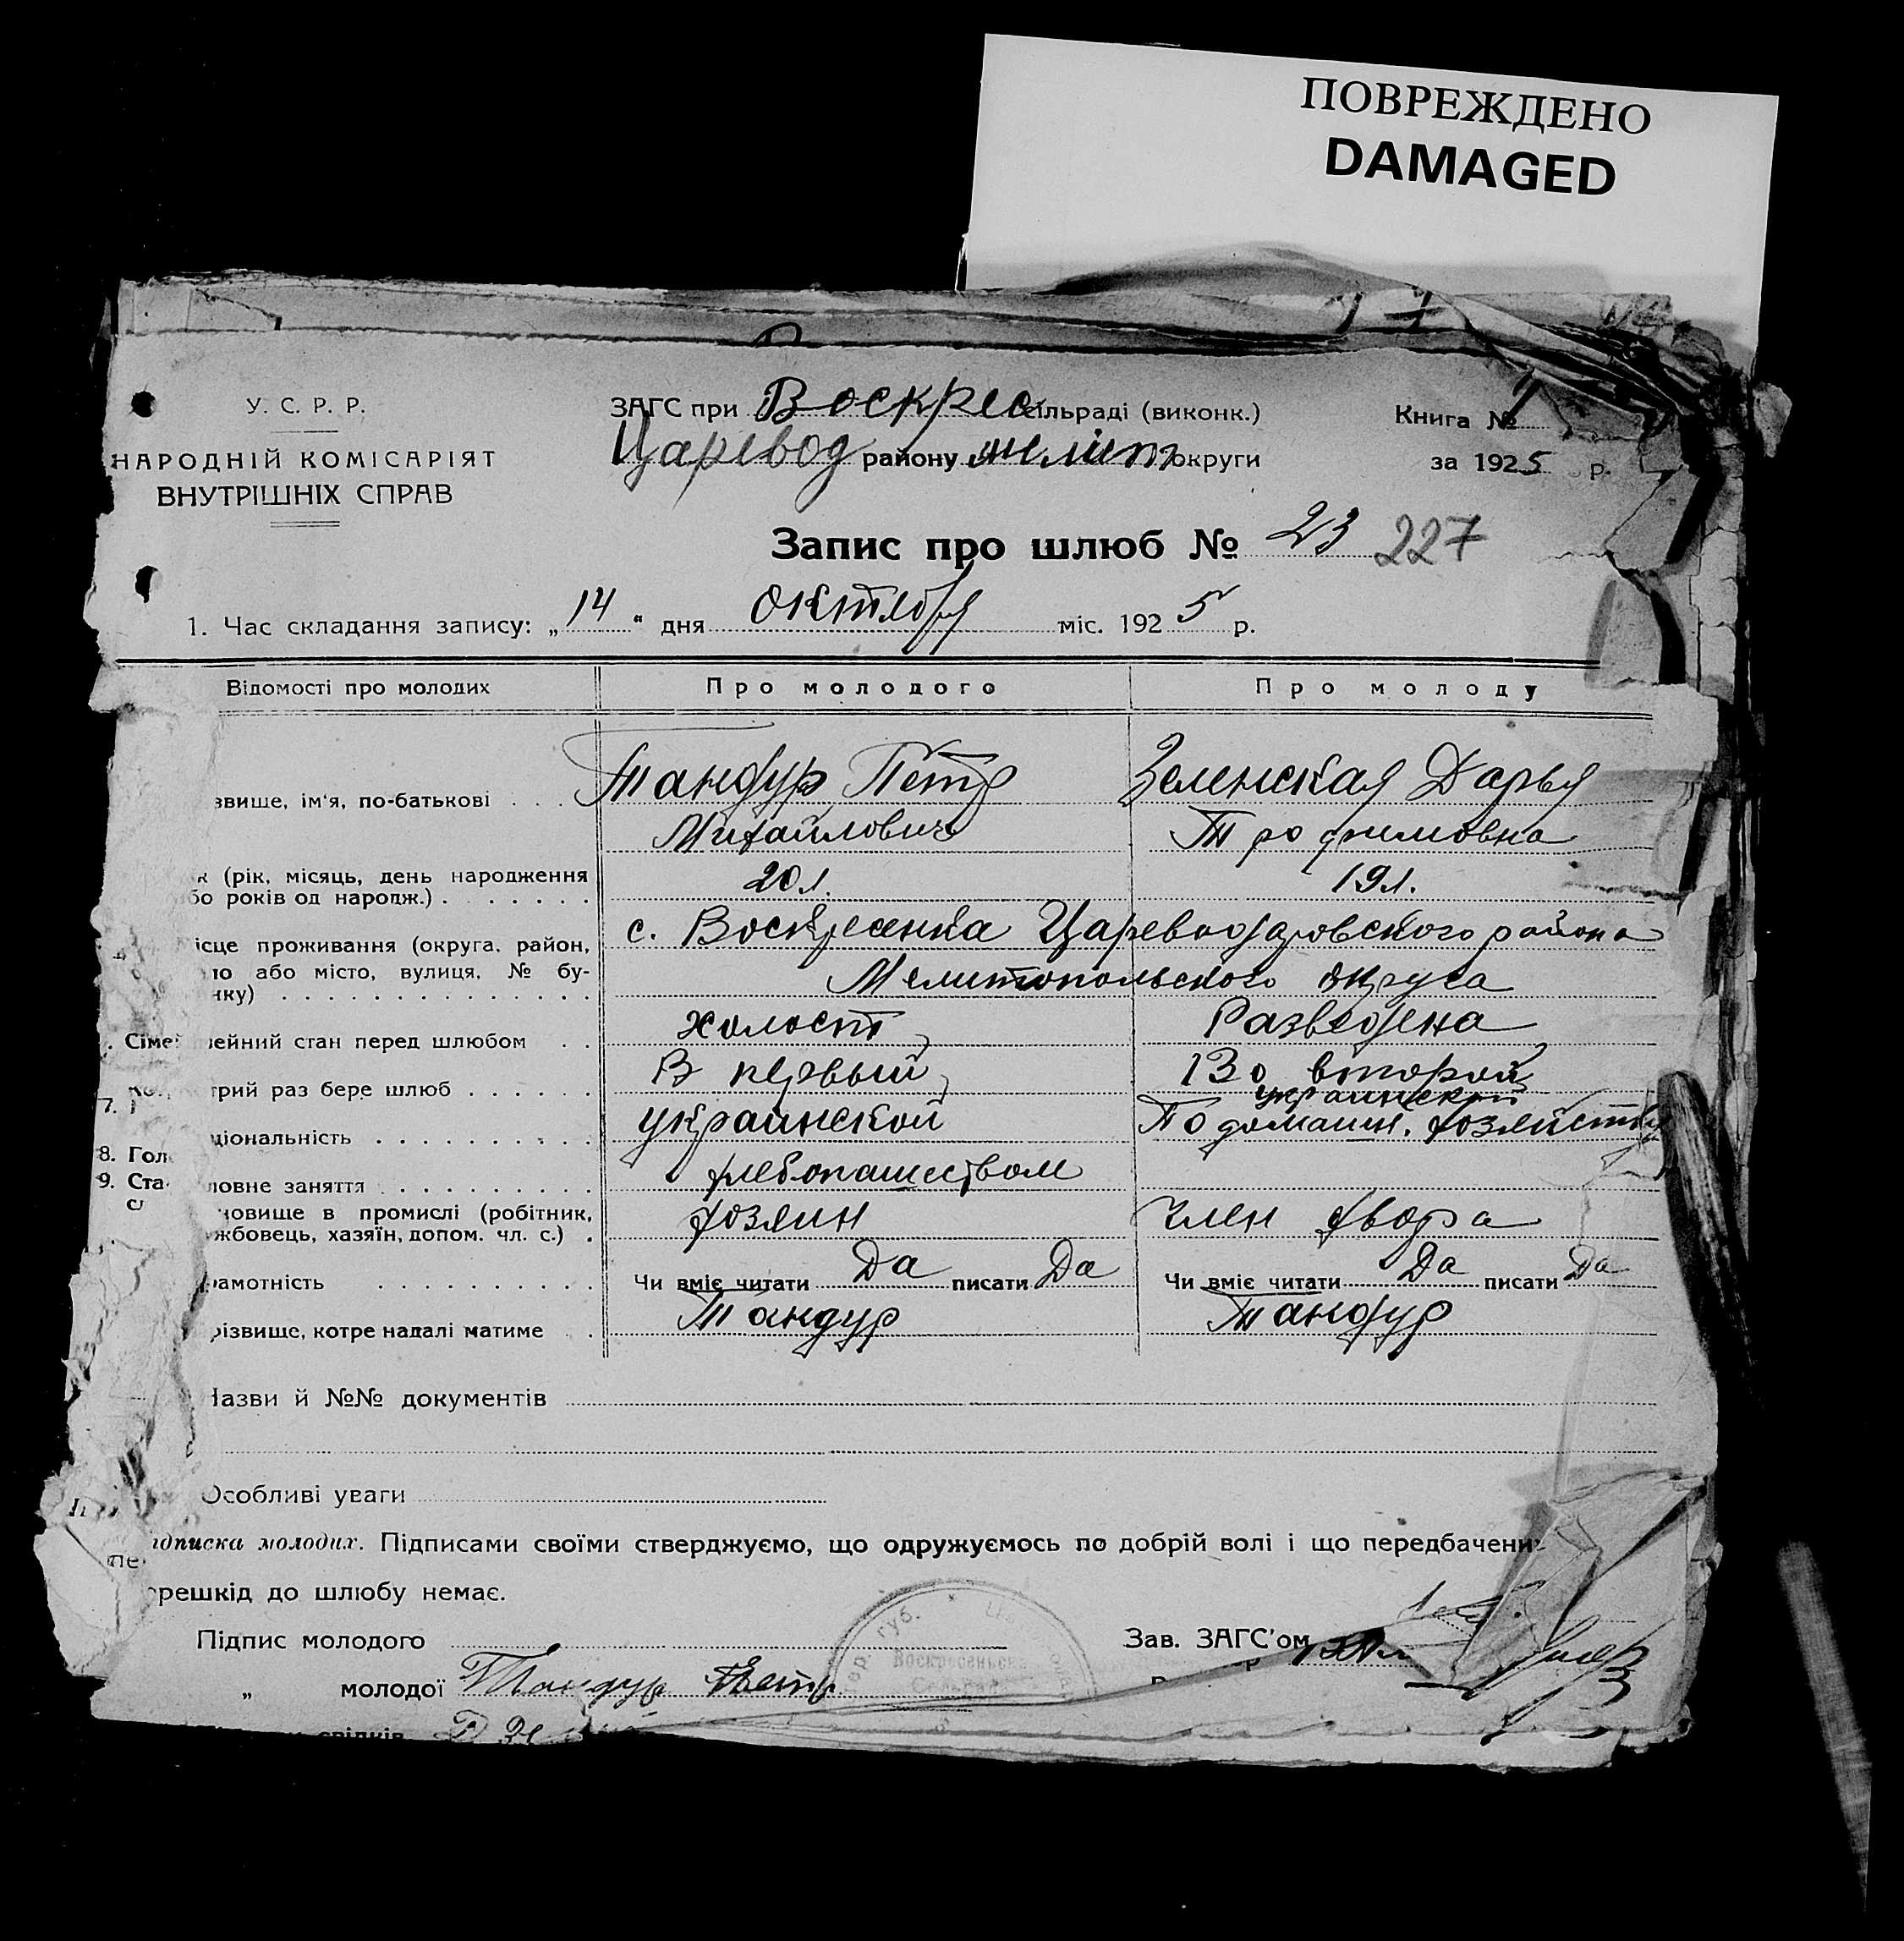 ПОВРЕЖДЕНО
DAMAGED
У. С. Р. Р.
НАРОДНІЙ КОМІСАРІЯТ
ВНУТРІШНІХ СПРАВ
ЗАГС при Воскрес сільраді (виконк.)
Царевод району мелит округи
Книга №
за 1925 р.
Запис про шлюб № 23 227
1. Час складання запису: „14“ дня октября міс. 1925 р.
Відомості про молодих Про молодого Про молоду
звище, ім'я, по-батькові . . . Тандур Петр Зеленская Дарья
Михайлович Трофимовна
к (рік, місяць, день народження 20 л. 19 л.
бо років од народж.) . . . . . . .
ісце проживання (округа, район, с. Воскресенка Цареводаровского района
ло або місто, вулиця, № бу-
нку) . . . . . . . . . . . . . . Мелитопольского округа
Сімейний стан перед шлюбом . . холост Разведена
трий раз бере шлюб . . . . . . В первый Во второй
украинской
7.
ціональність . . . . . . . . . . украинской По домашн. хозяйству
8. Гол
ловне заняття . . . . . . . . . хлебопашеством
9. Ста
новище в промислі (робітник, хозяин член двора
жбовець, хазяїн, допом. чл. с.) .
рамотність . . . . . . . . . . Чи вміє читати Да писати Да Чи вміє читати Да писати Да
різвище, котре надалі матиме . . Тандур Тандур
Назви й №№ документів
Особливі уваги
ідписка молодих. Підписами своїми стверджуємо, що одружуємось по добрій волі і що передбачени
решкід до шлюбу немає.
Підпис молодого
Зав. ЗАГС'ом
„ молодої Тандур Петр
свідків
губ.
Воскресеньска
Сельрада